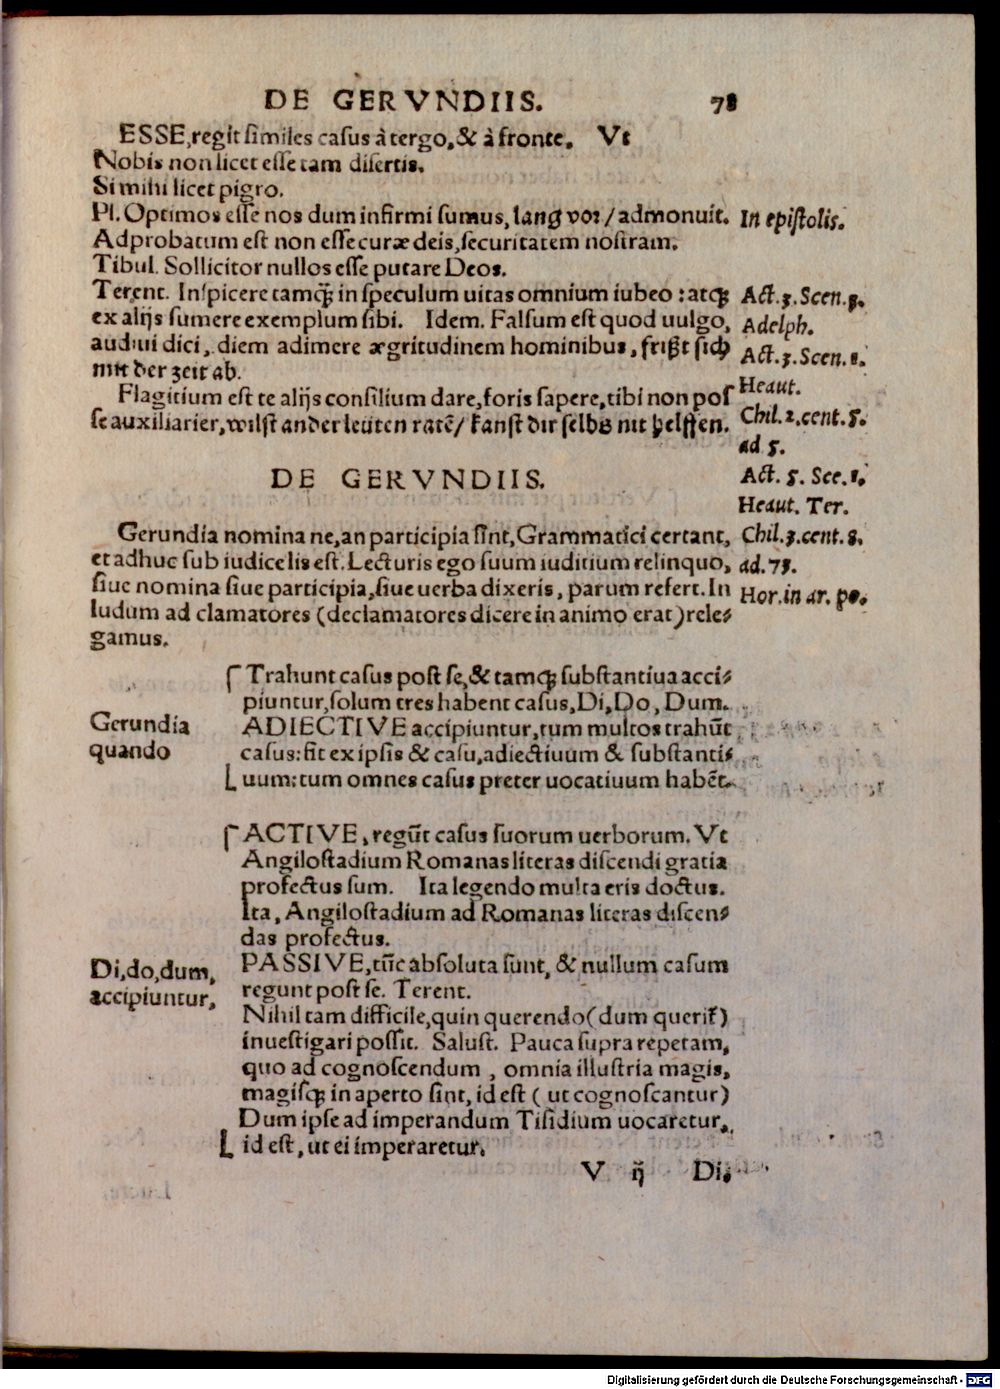 DE GERVNDIIS. 78
ESSE, regit similes casus à tergo, & à fronte. Vt
Nobis non licet esse tam disertis.
Si mihi licet pigro.
Pl. Optimos esse nos dum infirmi sumus, lang vor / admonuit. In epistolis.
Adprobatum est non esse curæ deis, securitatem nostram.
Tibul. Sollicitor nullos esse putare Deos.
Terent. Inspicere tamq̃ in speculum uitas omnium iubeo : atq̃ Act. 3. Scen. 3.
ex alijs sumere exemplum sibi. Idem. Falsum est quod uulgo, Adelph.
audiui dici, diem adimere ægritudinem hominibus, frißt sich Act. 3. Scen. 1.
mit der zeit ab.
Heaut.
Flagitium est te alijs consilium dare, foris sapere, tibi non pos
se auxiliarier, wilst ander leuten ratē / kanst dir selbs nit helffen. Chil. 2. cent. 5.
ad 5.
DE GERVNDIIS. Act. 5. Sce. 1.
Heaut. Ter.
Gerundia nomina ne, an participia sint, Grammatici certant, Chil. 3. cent. 8.
et adhuc sub iudice lis est. Lecturis ego suum iuditium relinquo, ad. 75.
siue nomina siue participia, siue uerba dixeris, parum refert. In Hor. in ar. po.
ludum ad clamatores (declamatores dicere in animo erat) rele-
gamus.
Trahunt casus post se, & tamq̃ substantiua acci-
piuntur, solum tres habent casus, Di, Do, Dum.
Gerundia
quando
ADIECTIVE accipiuntur, tum multos trahūt
casus: fit ex ipsis & casu, adiectiuum & substanti-
uum: tum omnes casus preter uocatiuum habēt.
ACTIVE, regūt casus suorum uerborum. Vt
Angilostadium Romanas literas discendi gratia
profectus sum. Ita legendo multa eris doctus.
Ita, Angilostadium ad Romanas literas discen-
das profectus.
Di, do, dum,
accipiuntur,
PASSIVE, tūc absoluta sunt, & nullum casum
regunt post se. Terent.
Nihil tam difficile, quin querendo (dum querit̃)
inuestigari possit. Salust. Pauca supra repetam,
quo ad cognoscendum , omnia illustria magis,
magisq̃ in aperto sint, id est ( ut cognoscantur)
Dum ipse ad imperandum Tisidium uocaretur,
id est, ut ei imperaretur.
V ij Di,
Digitalisierung gefördert durch die Deutsche Forschungsgemeinschaft - DFG